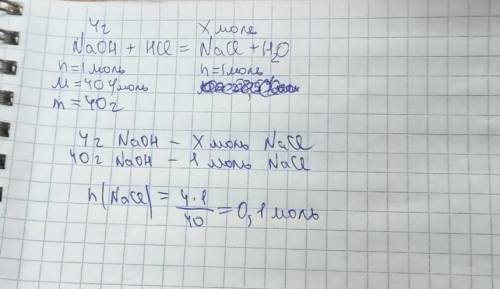 4г X моль
NaOH + HCl = NaCl + H2O
n = 1 моль n = 1 моль
M = 40 г/моль
m = 40г
4г NaOH - X моль NaCl
40г NaOH - 1 моль NaCl
n(NaCl) = 4·1/40 = 0,1 моль